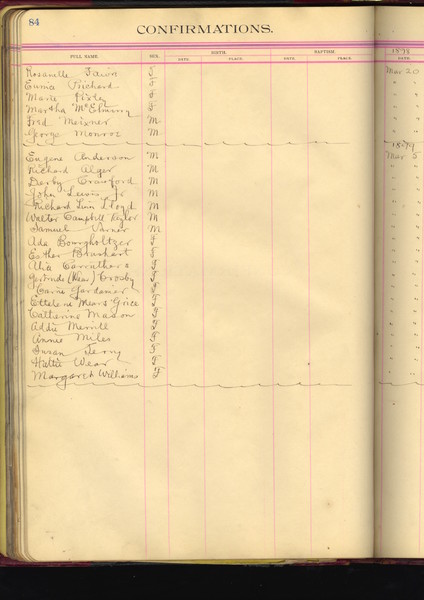 84
CONFIRMATIONS.
FULL NAME. SEX. BIRTH. BAPTISM. 1898
DATE. PLACE. DATE. PLACE. DATE.
Rosanelle F Mar 20
Emma Prichard F "
Marie Pixley F "
Martha McElmurry F "
Fred Meixner M "
George Monroe M "
1899
Eugene Anderson M Mar 5
Richard Alger M "
Derby Crawford M "
John Lewis Jr M "
Richard Linn Lloyd M "
Walter Campbell Taylor M "
Samuel Varner M "
Ada Bourgholtzer F "
Esther Branhart F "
Alia Carruthers F "
Gertrude (Wear) Crosby F "
Carrie Gardanier F "
Ettelene Mears Grice F "
Catherine Mason F "
Addie Merrill F "
Annie Miles F "
Susan Terry F "
Hattie Wear F "
Margaret Williams F "